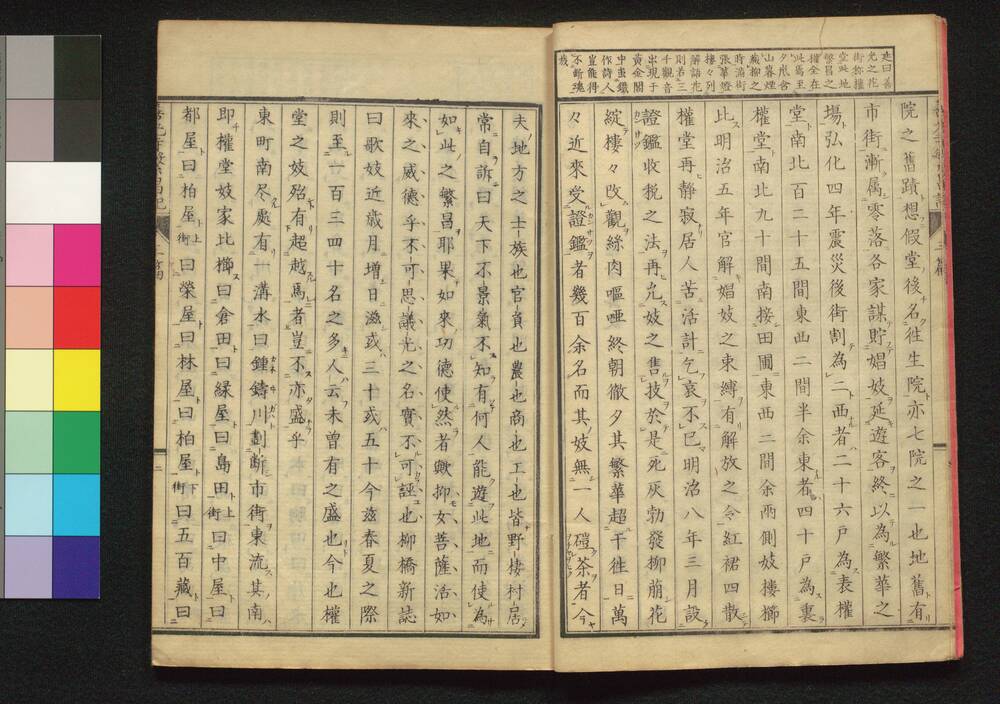 走曰善
光之花
街称權
堂此地
繁昌之
權全在
此焉至
夕陽含
山暮煙
籠柳之
時滿街
張華燈
樓々列
解語花
則若三
千觀音
出現于
黄金閣
中蚩鐵
作詩人
豈能得
不斷魂
哉
院之舊蹟想假堂後名徃生院亦七院之一也地舊有
市街漸屬零落各家謀貯娼妓延遊客終以為繁華之
場弘化四年震災後街割為二西者二十六戸為表權
堂南北百二十五間東西二間半余東者四十戸為裏
權堂南北九十間南接田圃東西二間余兩側妓樓櫛
比明治五年官解娼妓之束縛有解放之令紅裙四散
權堂再静寂居人苦活計乞哀不已明治八年三月設
證鑑收税之法再允妓之售技於是死灰勃發柳萠花
綻樓々改觀絲肉嘔啞終朝徹夕其繁華超干徃日萬
々近來受證鑑者幾百余名而其妓無一人磑茶者今
夫地方之士族也官員也農也商也工也皆野棲村居
常自訴曰天下不景氣不知有何人能遊此地而使為
如此之繁昌耶果如來功德使然者歟抑女菩薩活如
來之威德乎不可思議光之名實不可誣也柳橋新誌
曰歌妓近歳月増日滋或三十或五十今茲春夏之際
則至一百三四十名之多人云未曽有之盛也今也權
堂之妓殆有超越焉者豈不亦盛乎
東町南尽處有一溝水曰鍾鑄川劃斷市街東流其南
即權堂妓家比櫛曰倉田曰緑屋曰島田上街曰中屋曰
都屋曰柏屋上街曰榮屋曰林屋曰柏屋下街曰五百藏曰